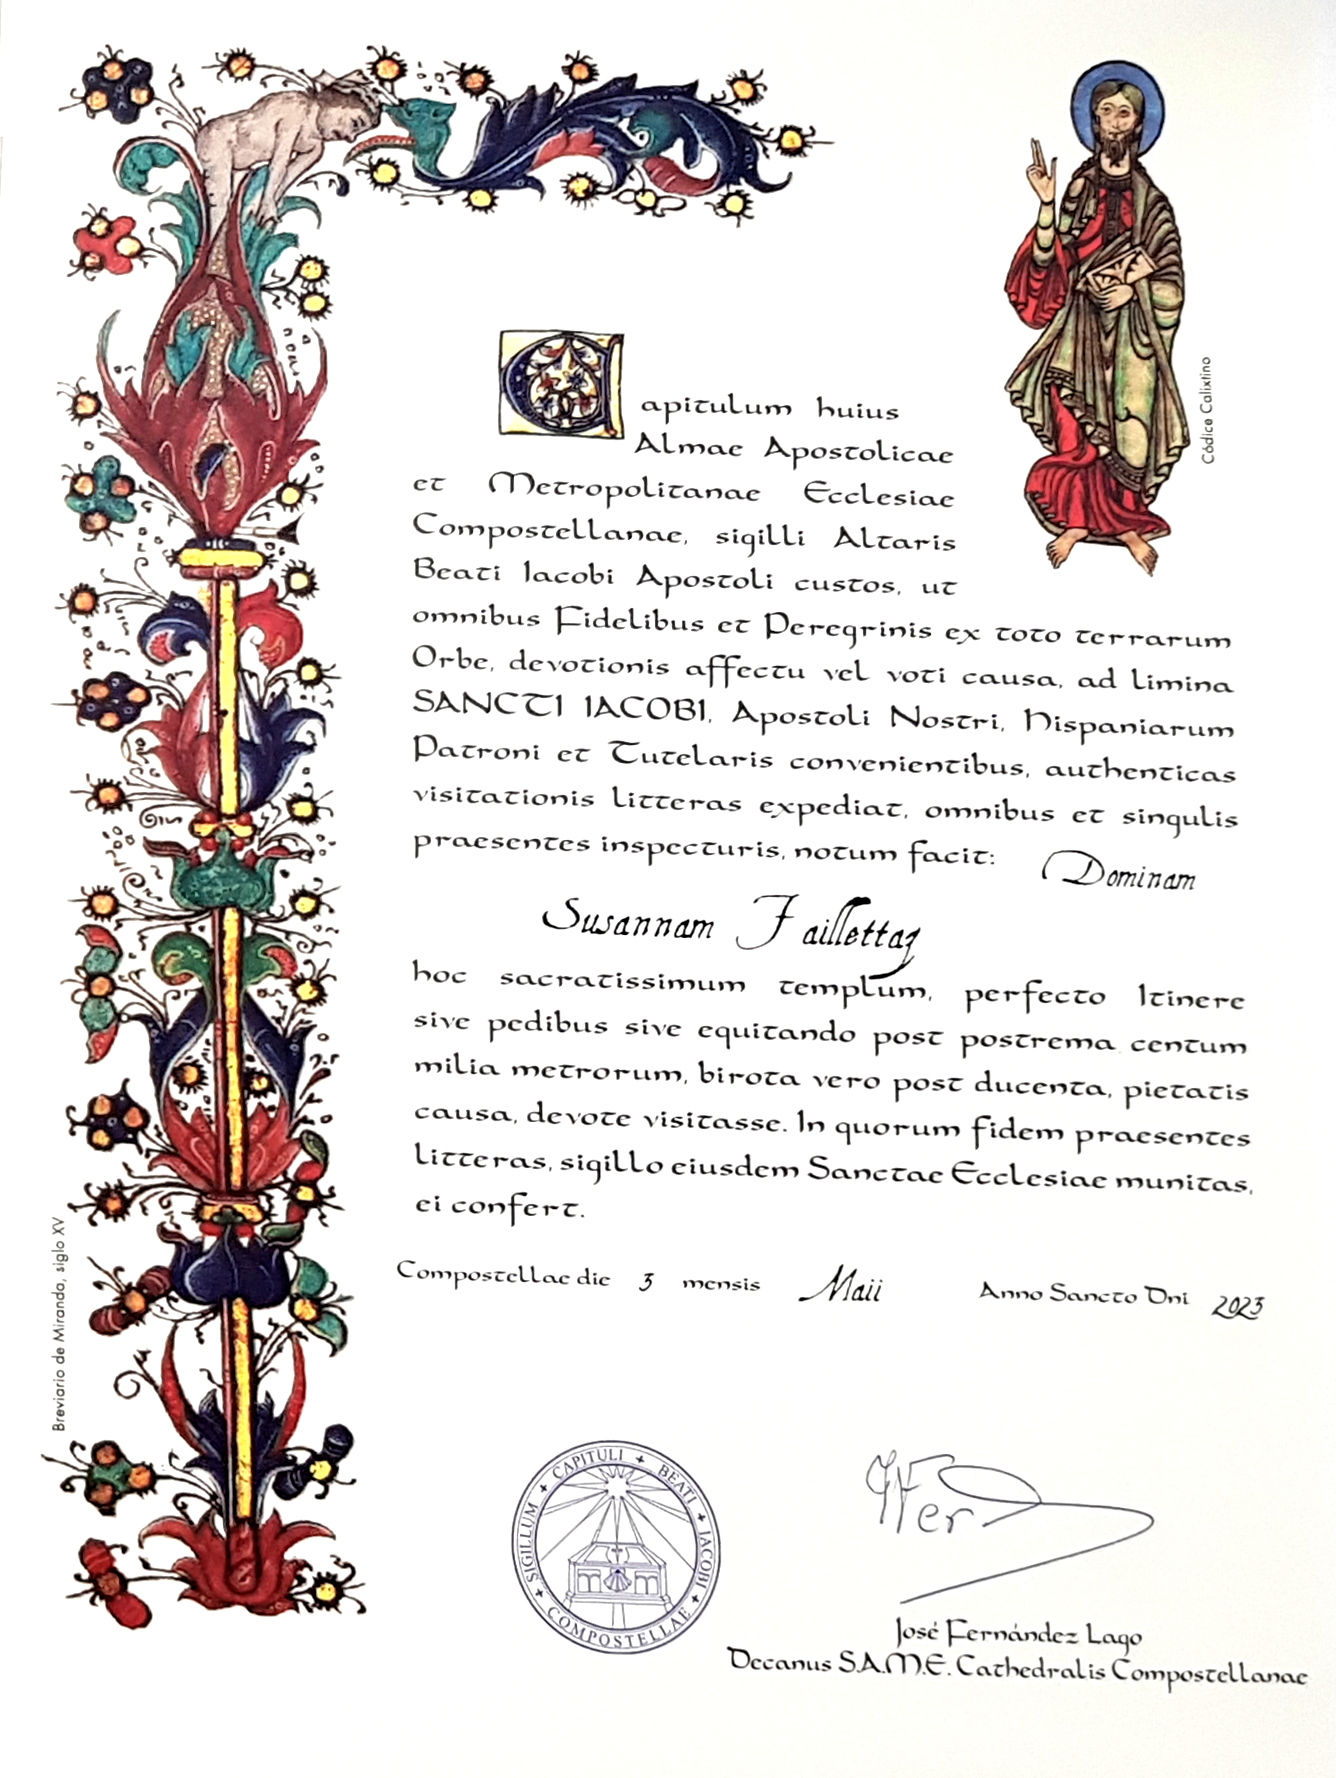 Capitulum huius
Almae Apostolicae
et Metropolitanae Ecclesiae
Compostellanae, sigilli Altaris
Beati Iacobi Apostoli custos, ut
omnibus Fidelibus et Peregrinis ex toto terrarum
Orbe, devotionis affectu vel voti causa, ad limina
SANCTI IACOBI, Apostoli Nostri, Hispaniarum
Patroni et Tutelaris convenientibus, authenticas
visitationis litteras expediat, omnibus et singulis
praesentes inspecturis, notum facit: Dominam
Susannam Faillettaz
hoc sacratissimum templum, perfecto Itinere
sive pedibus sive equitando post postrema centum
milia metrorum, birota vero post ducenta, pietatis
causa, devote visitasse. In quorum fidem praesentes
litteras, sigillo eiusdem Sanctae Ecclesiae munitas,
ei confert.
Compostellae die 3 mensis Maii Anno Sancto Dni 2023
SIGILLUM + CAPITULI + BEATI + JACOBI + COMPOSTELLAE +
José Fernández Lago
Decanus S.A.M.E. Cathedralis Compostellanae
Códice Calixtino
Breviario de Miranda, siglo XV